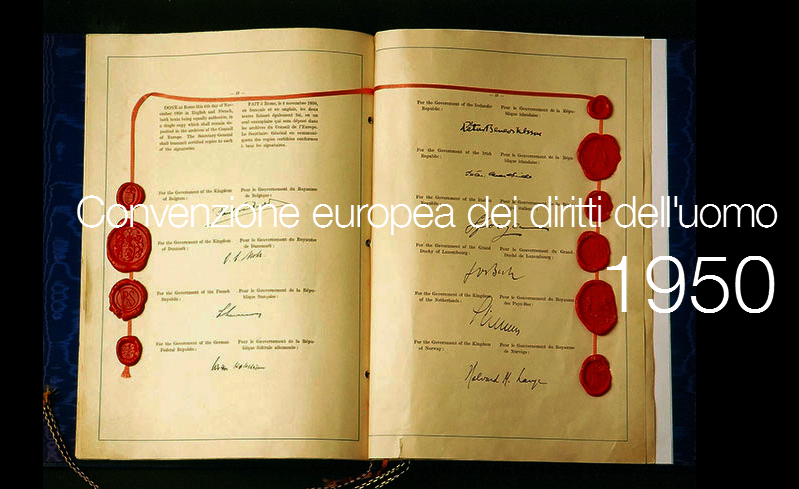 DONE at Rome this 4th day of Nov-
ember 1950 in English and French,
both texts being equally authentic, in
a single copy which shall remain de-
posited in the archives of the Council
of Europe. The Secretary-General
shall transmit certified copies to each
of the signatories.
FAIT à Rome, le 4 novembre 1950,
en français et en anglais, les deux
textes faisant également foi, en un
seul exemplaire qui sera déposé dans
les archives du Conseil de l'Europe.
Le Secrétaire Général en communi-
quera des copies certifiées conformes
à tous les signataires.
For the Government of the Kingdom
of Belgium:
Pour le Gouvernement du Royaume
de Belgique:
For the Government of the Kingdom
of Denmark:
Pour le Gouvernement du Royaume
de Danemark:
For the Government of the French
Republic:
Pour le Gouvernement de la Répu-
blique française:
For the Government of the German
Federal Republic:
Pour le Gouvernement de la Répu-
blique fédérale allemande:
For the Government of the Icelandic
Republic:
Pour le Gouvernement de la Répu-
blique islandaise:
For the Government of the Irish
Republic:
Pour le Gouvernement de la Répu-
blique irlandaise:
Convenzione europea dei diritti dell'uomo
1950
For the Government of the Grand
Duchy of Luxembourg:
Pour le Gouvernement du Grand
Duché de Luxembourg:
For the Government of the Kingdom
of the Netherlands:
Pour le Gouvernement du Royaume
des Pays-Bas:
For the Government of the Kingdom
of Norway:
Pour le Gouvernement du Royaume
de Norvège:
Halvard M. Lange